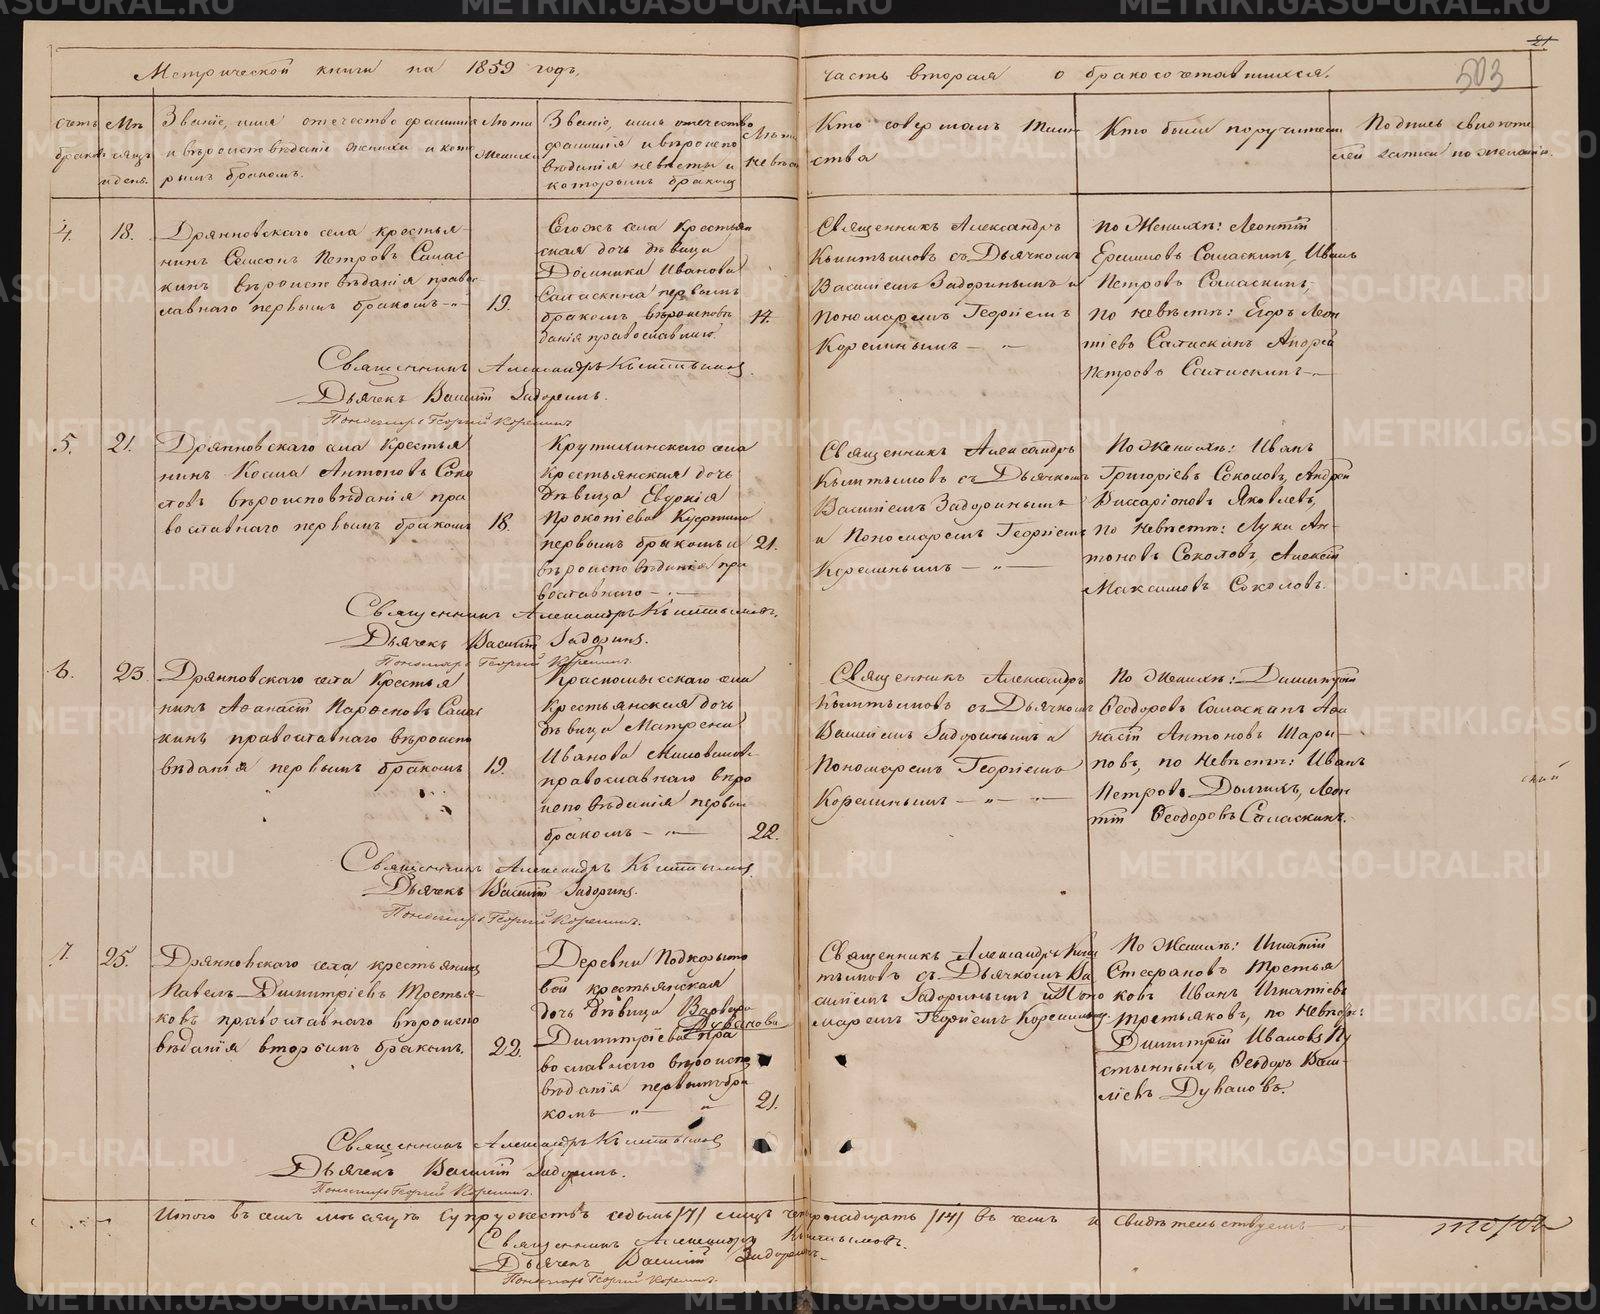 Метрической книги на 1859 годъ,
часть вторая о бракосочетавшихся.
21
503
Счетъ браковъ
Мѣсяцъ и день.
Званіе, имя отечество фамилія
и вѣроисповѣданіе жениха и кото
рымъ бракомъ.
Лѣта
жениха
Званіе, имя отечество
фамилія и вѣроиспо
вѣданія невѣсты и
которымъ бракомъ
Лѣта
невѣсты
Кто совершалъ таин
ства
Кто были поручители
Подпись свидѣте
лей записи по желанію.
4.
18.
Дрянновскаго села крестья-
нинъ Самсонъ Петровъ Салас
кинъ вѣроисповѣданія право
славнаго первымъ бракомъ
19.
Сегожъ села Крестьян
ская дочь дѣвица
Домника Иванова
Саласкина первымъ
бракомъ вѣроиспов
данія православнаго.
17.
Священникъ Александръ
Кыштымовъ съ Дьячкомъ
Василіемъ Задоринымъ и
Пономаремъ Георгіемъ
Корелинымъ
По Женихѣ: Леонтій
Ереминовъ Саласкинъ, Иванъ
Петровъ Саласкинъ,
по невѣстѣ: Егоръ Леон
тіевъ Саласкинъ Андрей
Петровъ Саласкинъ
Священникъ Александръ Кыштымовъ.
Дьячекъ Василій Задоринъ.
Пономарь Георгій Корелинъ
5.
21.
Дрянновскаго села Крестья
нинъ Косма Антоновъ Соко
ловъ вѣроисповѣданія пра
вославнаго первымъ бракомъ
18.
Крутихинскаго села
Крестьянская дочь
дѣвица Евдокія
Прокопіева
первымъ бракомъ и
вѣроисповѣданія пра
вославнаго
21.
Священникъ Александръ
Кыштымовъ съ Дьячкомъ
Василіемъ Задоринымъ
и Пономаремъ Георгіемъ
Корелинымъ
По Женихѣ: Иванъ
Григоріевъ Соколовъ, Андрей
Виссаріоновъ Яковлевъ,
по невѣстѣ: Лука Ан-
тоновъ Соколовъ, Алексѣй
Максимовъ Соколовъ.
Священникъ Александръ Кыштымовъ.
Дьячекъ Василій Задоринъ.
Пономарь Георгій Корелинъ.
6.
23.
Дрянновскаго села Крестья
нинъ Афанасій Парфеновъ Салас
кинъ православнаго вѣроиспо
вѣданія первымъ бракомъ
19.
Красномысскаго села
Крестьянская дочь
дѣвица Матрена
Иванова
православнаго вѣро
исповѣданія первым
бракомъ
22.
Священникъ Александръ
Кыштымовъ съ Дьячкомъ
Василіемъ Задоринымъ и
Пономаремъ Георгіемъ
Корелинымъ
По Женихѣ: Димитрій
Ѳеодоровъ Саласкинъ Афа
насій Антоновъ Шары-
повъ, по невѣстѣ: Иванъ
Петровъ Долгихъ, Леон
тій Ѳеодоровъ Саласкинъ.
Священникъ Александръ Кыштымовъ.
Дьячекъ Василій Задоринъ.
Пономарь Георгій Корелинъ.
7.
25.
Дрянновскаго села крестьянинъ
Павелъ Димитріевъ Третья-
ковъ православнаго вѣроиспо
вѣданія вторымъ бракомъ.
22.
Деревни Подкорыто
вой крестьянская
дочь дѣвица Варвара
Димитріева Дуванова пра
вославнаго вѣроиспо
вѣданія первымъ бра
комъ
21.
Священникъ Александръ Кыш
тымовъ съ Дьячкомъ Ва
силіемъ Задоринымъ и Поно
маремъ Георгіемъ Корелинымъ.
По Женихѣ: Игнатій
Стефановъ Третья
ковъ Иванъ Игнатіевъ
Третьяковъ, по невѣстѣ:
Димитрій Ивановъ Пу
стынныхъ, Ѳеодоръ Васи-
ліевъ Дувановъ.
Священникъ Александръ Кыштымовъ
Дьячекъ Василій Задоринъ.
Пономарь Георгій Корелинъ.
Итого въ семъ мѣсяцѣ Супружествъ седьмь /7/ лицъ четырнадцать /14/ въ чемъ и свидѣтельствуемъ
Священникъ Александръ Кыштымовъ.
Дьячекъ Василій Задоринъ.
Пономарь Георгій Корелинъ.
METRIKI.GASO-URAL.RU